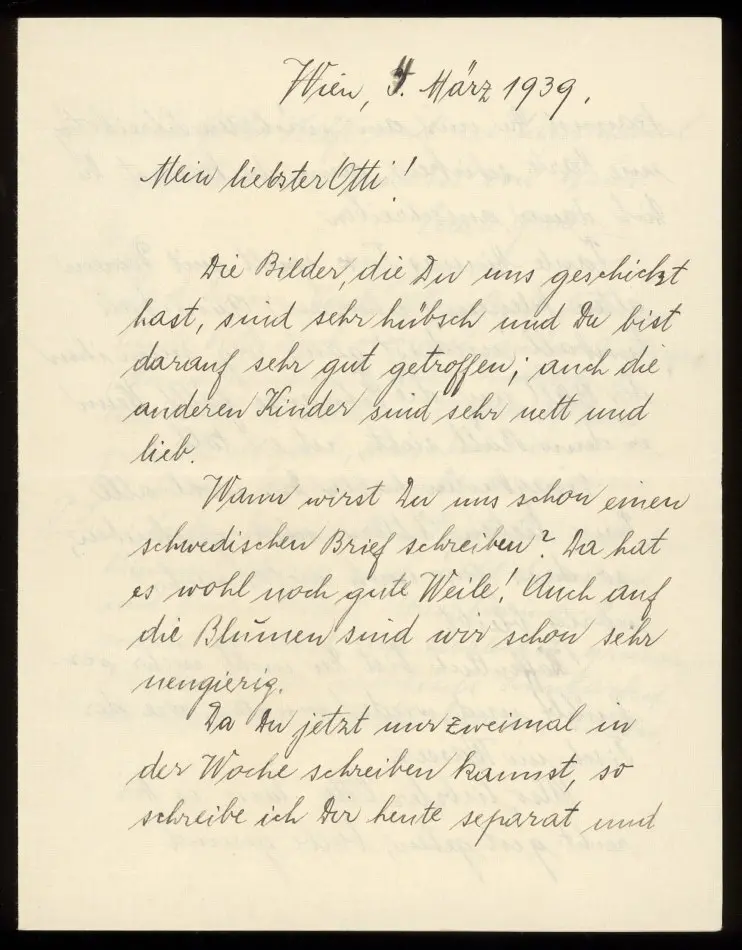 Wien, 4. März 1939.
Mein liebster Otti!
Die Bilder, die Du uns geschickt
hast, sind sehr hübsch und Du bist
darauf sehr gut getroffen; auch die
anderen Kinder sind sehr nett und
lieb.
Wann wirst Du uns schon einen
schwedischen Brief schreiben? Da hat
es wohl noch gute Weile! Auch auf
die Blumen sind wir schon sehr
neugierig.
Da Du jetzt nur zweimal in
der Woche schreiben kannst, so
schreibe ich Dir heute separat und